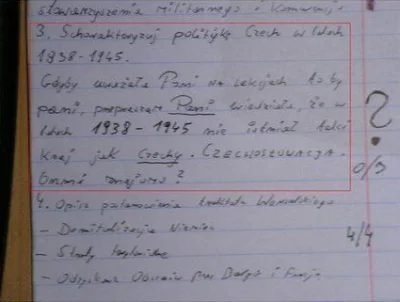 stowarzyszenia militarnego i
3. Scharakteryzuj politykę Czech w latach
1938-1945.
Gdyby uważała Pani na lekcjach to by
pani, przepraszam Pani wiedziała, że w
latach 1938-1945 nie istniał taki
kraj jak Czechy. CZECHOSŁOWACJA.
mniej znajoma?
?
0/3
4. Opisz postanowienia traktatu Wersalskiego
4/4
- Demilitaryzacja Niemiec
- Straty
- Odzyskanie przez i